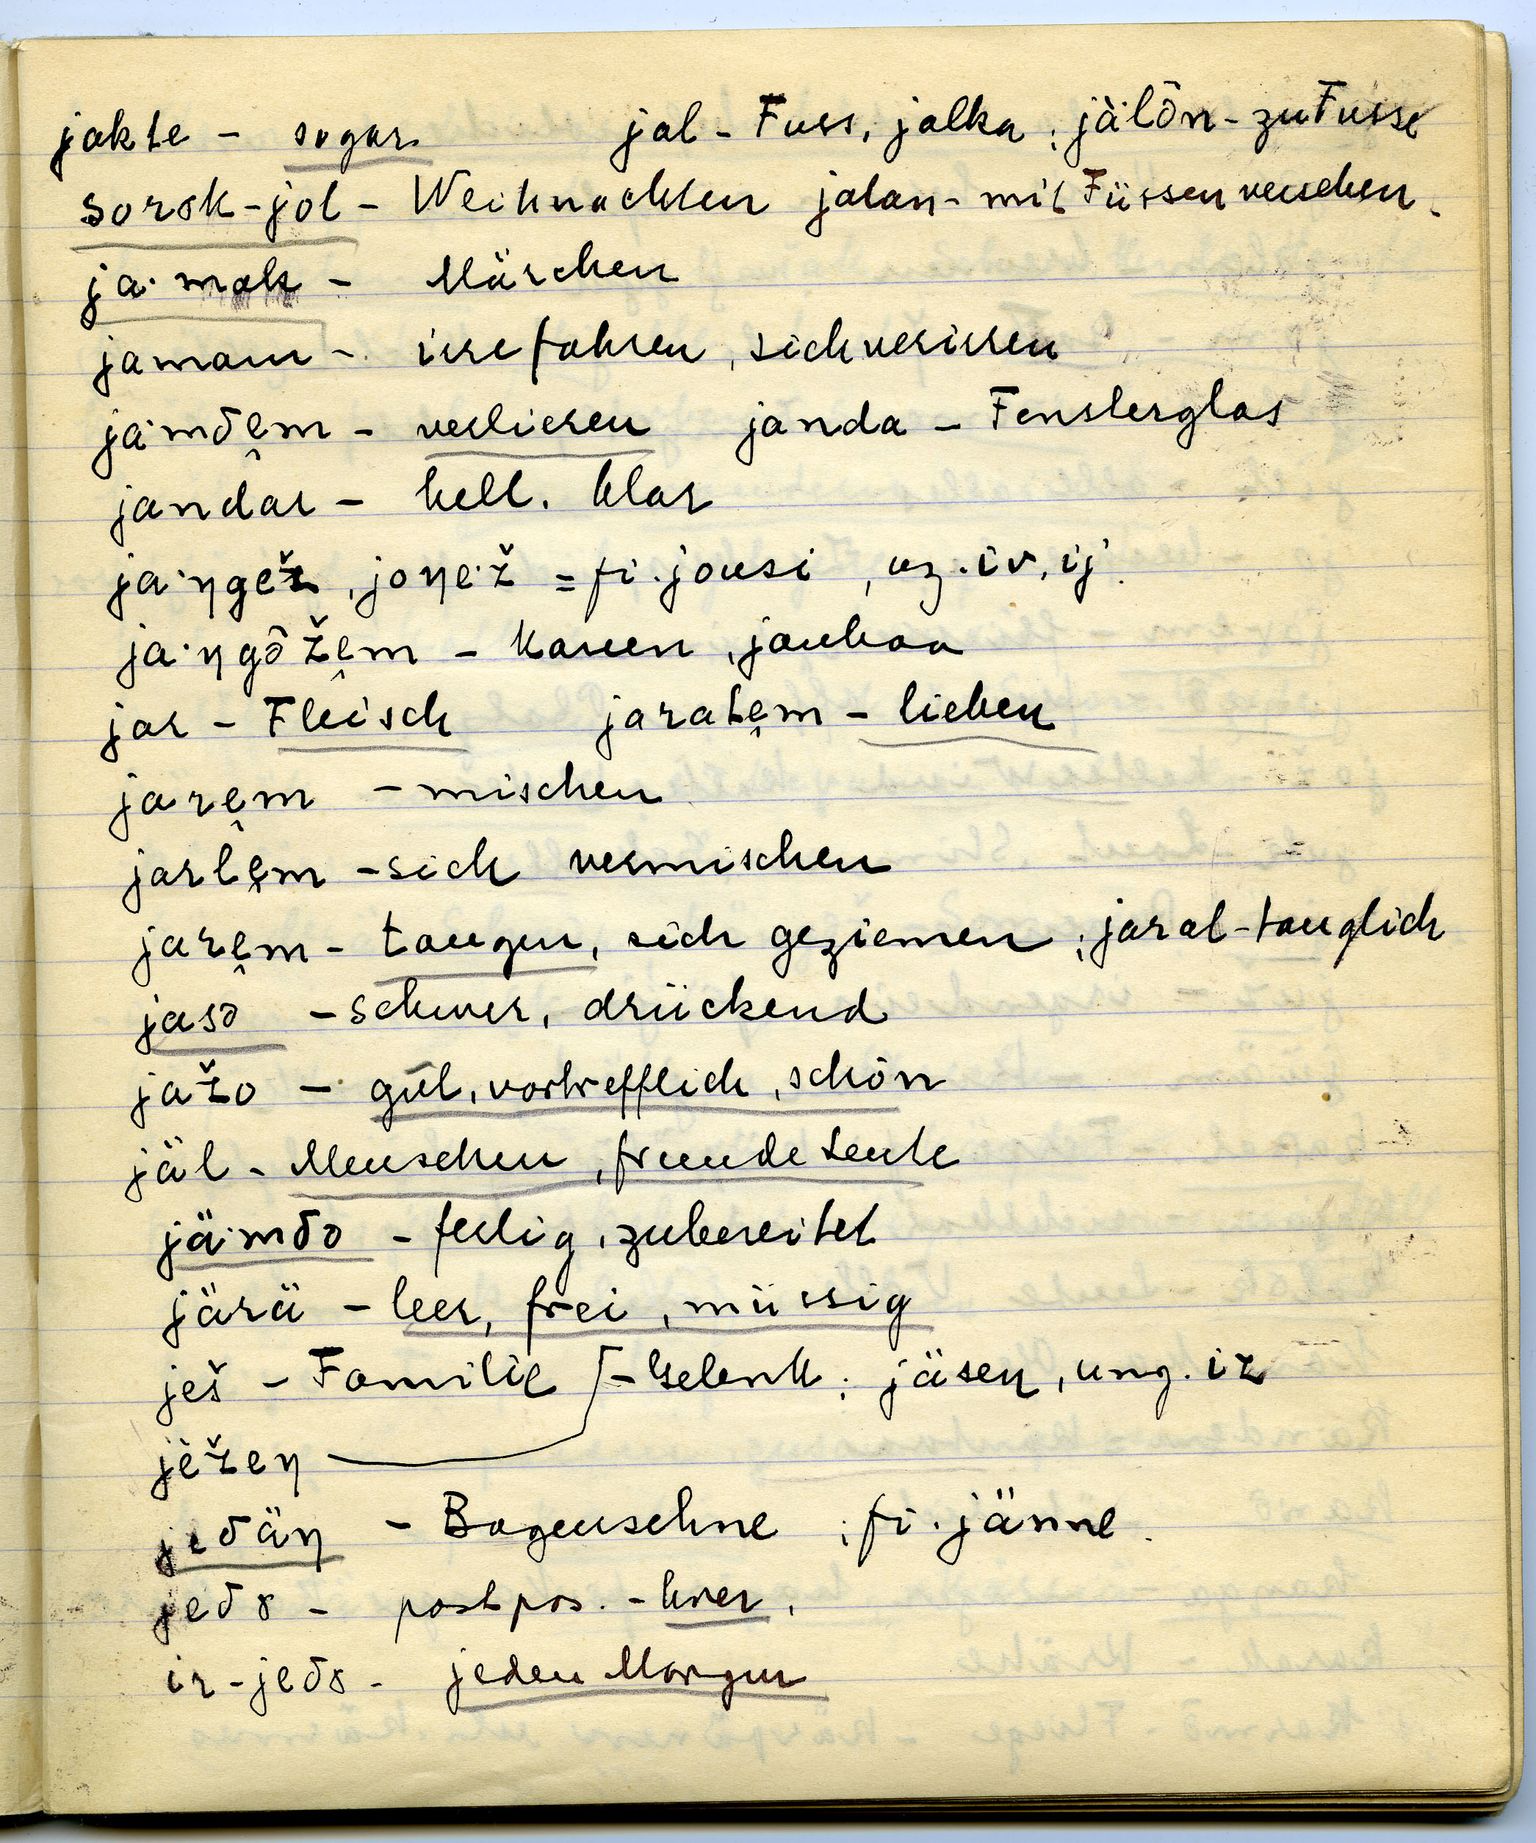 jakte - sogar jal - Fuss, jalka; jàlôn - zu Fusse
sorok-jol - Weihnachten jalan - mit Füssen versehen.
ja·mak - Märchen
jamam - irrefahren, sich verirren
jamδem - verlieren janda - Fensterglas
jandar - hell, klar
ja·ŋgež, joŋe·ž = fi. jousi, ug. iv, ij.
ja·ŋgôžem - kauen, jauhaa
jar - Fleisch jaratem - lieben
jarem - mischen
jarlem - sich vermischen
jarem - taugen, sich geziemen; jaral - tauglich
jasə - schwer, drückend
jažo - gut, vortrefflich, schön
jäl - Menschen, fremde Leute
jä·mδə - fertig, zubereitet
järä - leer, frei, müssig
ješ - Familie - Gelenk; jäsen, ung. iz
jèžeŋ
jeδäŋ - Bogensehne; fi. jänne.
jeδə - postpos. -
ir-jeδə - jeden Morgen